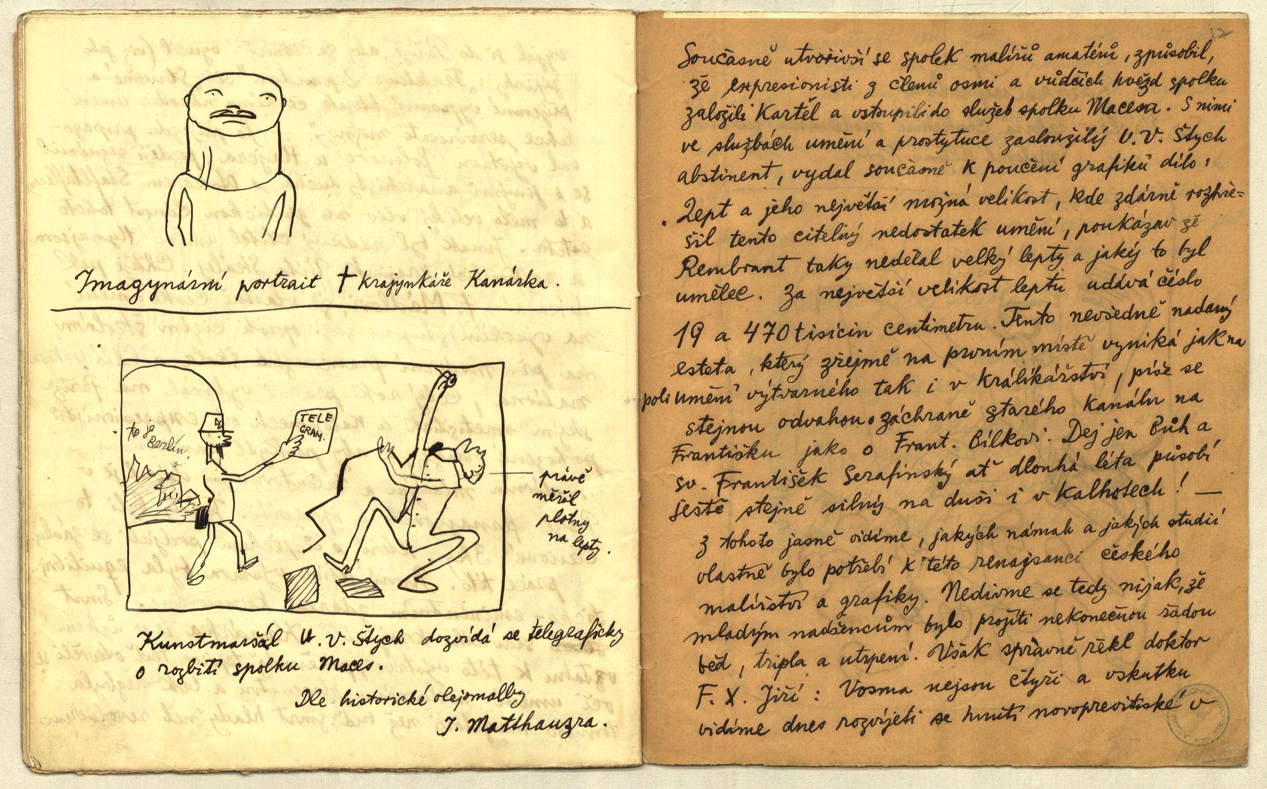 Imagynární portrait † krajynkáře Kanárka.
to je Berlín.
TELE
GRAM.
právě
měřil
plotny
na lepty.
Kunstmaršál V. V. Štych dozvídá se telegraficky
o rozbití spolku Maces.
Dle historické olejomalby
J. Matthauzra.
12
Současně utvořivší se spolek malířů amatérů, způsobil,
že expresionisti z členů osmi a vůdčích hvězd spolku
založili Kartél a vstoupili do služeb spolku Macesa. S nimi
ve službách umění a prostytuce zasloužilý V. V. Štych
abstinent, vydal současně k poučení grafiků dílo:
Lept a jeho největší možná velikost, kde zdárně rozře-
šil tento citelný nedostatek umění, poukázav že
Rembrant taky nedělal velký lepty a jakéj to byl
umělec. Za největší velikost leptu udává číslo
19 a 470 tisícin centimetru. Tento nevšedně nadaný
esteta, který zřejmě na prvním místě vyniká jak na
poli umění výtvarného tak i v králikářství, práz se
stejnou odvahou o záchraně starého kanálu na
Františku jako o Frant. Bílkovi. Dej jen Bůh a
sv. František Serafínský ať dlouhá léta působí
ještě stejně silný na duši i v kalhotech! —
Z tohoto jasně vidíme, jakých námah a jakých studií
vlastně bylo potřebí k této renajsanci českého
malířství a grafiky. Nedivme se tedy nijak, že
mladým nadšencům bylo projíti nekonečnou řadou
běd, tripla a utrpení. Však správně řekl doktor
F. X. Jiří: Vosma nejsou čtyři a vskutku
vidíme dnes rozvíjeti se hnutí novoprevítiské v